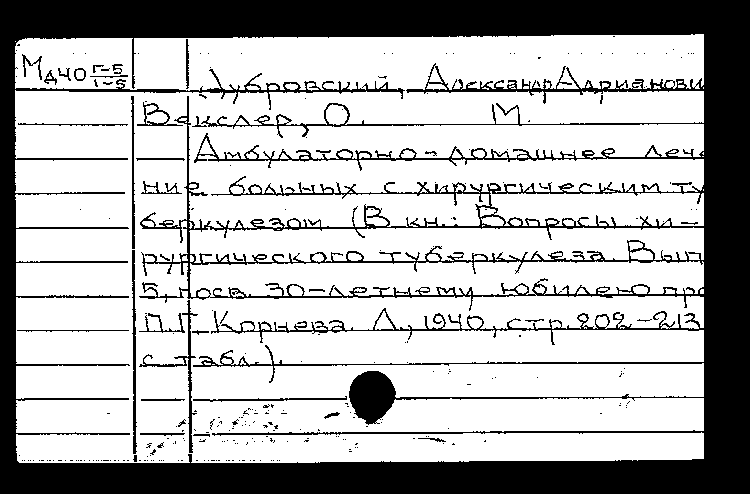 МДЧО Г-5/1-5
Дубровский, Александр Адрианови
Векслер, О. М.
Амбулаторно-домашнее лече
ние больных с хирургическим ту
беркулезом. (В кн.: Вопросы хи-
рургического туберкулеза. Вып
5, посв. 30-летнему юбилею про
П.Г. Корнева. Л., 1940, стр. 202-213
с табл.).